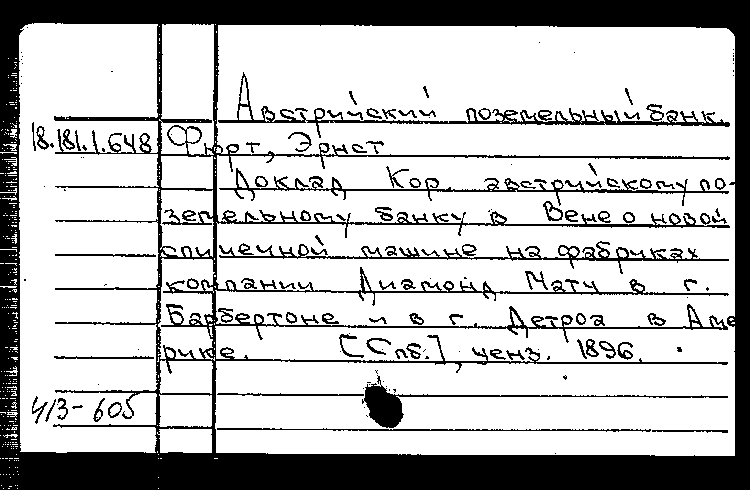 Австрийский поземельный банк.
18.181.1.648 Фюрт, Эрнст
Доклад Кор. австрийскому по-
земельному банку в Вене о новой
спичечной машине на фабриках
компании Диамонд Матч в г.
Барбертоне и в г. Детроа в Аме
рике. [Спб.], ценз. 1896.
4/3-605